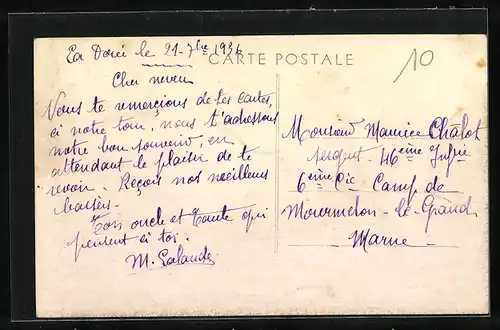 La Dorée le 21-7bre 1936
CARTE POSTALE
10
Cher neveu
Nous te remerçions de tes cartes,
à notre tour, nous t'adressons
notre bon souvenir, en
attendant le plaisir de te
revoir. Reçois nos meilleurs
baisers.
Tes oncle et tante qui
pensent à toi.
M. Lalande
Monsieur Maurice Châlot
sergent. 46ème Infie
6ème Cie Camp de
Mourmelon-le-Grand
Marne